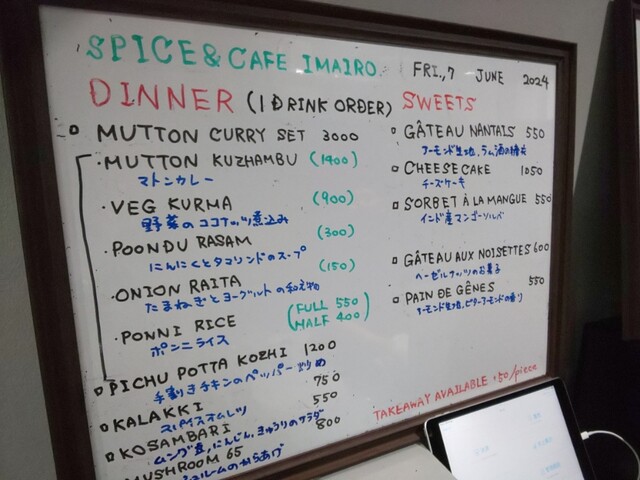 SPICE & CAFE IMAIRO. FRI., 7 JUNE 2024
DINNER (1 DRINK ORDER)
MUTTON CURRY SET 3000
・MUTTON KUZHAMBU (1400)
マトンカレー
・VEG KURMA (900)
野菜のココナッツ煮込み
・POONDU RASAM (300)
にんにくとタマリンドのスープ
・ONION RAITA (150)
たまねぎとヨーグルトの和え物
・PONNI RICE (FULL 550 HALF 400)
ポンニライス
PICHU POTTA KOZHI 1200
手割きチキンのペッパー炒め
KALAKKI 750
スパイスオムレツ
KOSAMBARI 550
ムング豆、にんじん、きゅうりのサラダ
MUSHROOM 65 800
ルームのからあげ
SWEETS
GÂTEAU NANTAIS 550
アーモンド生地、ラム酒の
CHEESE CAKE 1050
チーズケーキ
SORBET À LA MANGUE 550
インド産マンゴーソルベ
GÂTEAU AUX NOISETTES 600
ヘーゼルナッツのお菓子
PAIN DE GÊNES 550
アーモンド生地、ビターアーモンドの香り
TAKEAWAY AVAILABLE ・50/piece